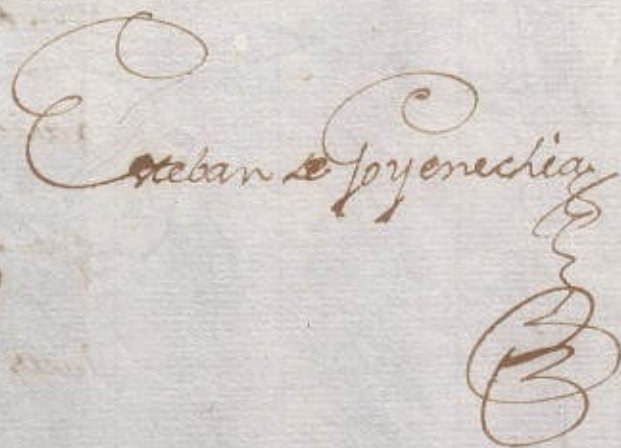 Esteban de Goyenechia